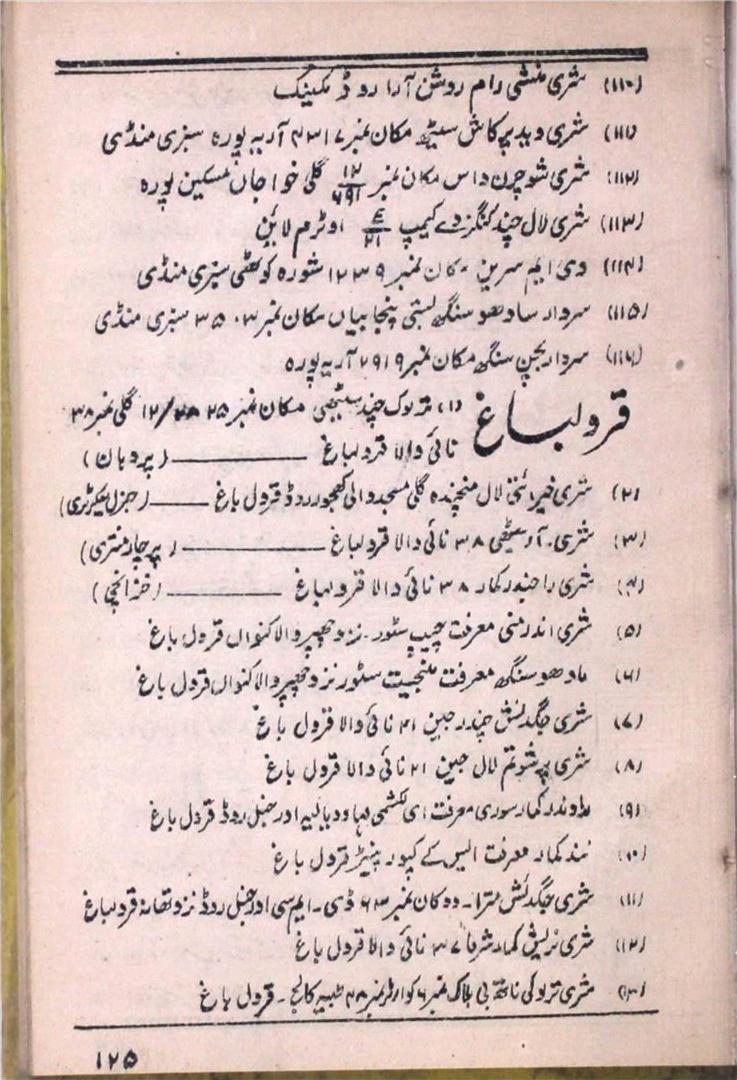 (۱۱۰) شری منشی رام روشن آرا روڈ مکینک
(۱۱۱) شری وید پرکاش سیٹھ مکان نمبر ۴۳۱۷ آریہ پورہ سبزی منڈی
(۱۱۲) شری شو چرن داس مکان نمبر ۱۲/۶۹۱ گلی خواجاں مسکین پورہ
(۱۱۳) شری لال چند کنگزوے کیمپ ۴/۲۱ اوٹرم لائن
(۱۱۴) وی ایم سرین مکان نمبر ۱۲۳۹ شورہ کوٹھی سبزی منڈی
(۱۱۵) سردار سادھو سنگھ بستی پنجابیاں مکان نمبر ۳۵۰۳ سبزی منڈی
(۱۱۶) سردار بچن سنگھ مکان نمبر ۲۹۱۹ آریہ پورہ
قرولباغ
(۱) تلوک چند سیٹھی مکان نمبر ۲۵ ۱۲/۲۸ گلی نمبر ۳۸
نائی والا قرولباغ ــــــ (پردہان)
(۲) شری خیرائتی لال منچندہ گلی مسجد والی کھجور روڈ قرول باغ ــــــ (جنرل سیکرٹری)
(۳) شری۔ آر سیٹھی ۳۸ نائی والا قرولباغ ــــــ (پرچار منتری)
(۴) شری راجندر کمار ۳۸ نائی والا قرولباغ ــــــ (خزانچی)
(۵) شری اندر منی معرفت چیپ سٹور۔ نزد چھپر والا کنواں قرول باغ
(۶) مادھو سنگھ معرفت منجیت سٹور نزد چھپر والا کنواں قرول باغ
(۷) شری جگدیش چندر جین ۲۱ نائی والا قرول باغ
(۸) شری پرشوتم لال جین ۲۱ نائی والا قرول باغ
(۹) کمار سوری معرفت ای لکشمی مہاودیالیہ اورجنل روڈ قرول باغ
(۱۰) نند کمار معرفت ایس کے کپور پینٹر قرول باغ
(۱۱) شری جگدیش مترا۔ دوکان نمبر ۶۳ ڈی۔ایم سی اورجنل روڈ نزد تھانہ قرولباغ
(۱۲) شری نریش کمار شرما ۳۷ نائی والا قرول باغ
(۱۳) شری ترلوکی ناتھ بی بلاک نمبر ۶ کوارٹر نمبر ۴۸ طبیہ کالج۔ قرول باغ
۱۲۵